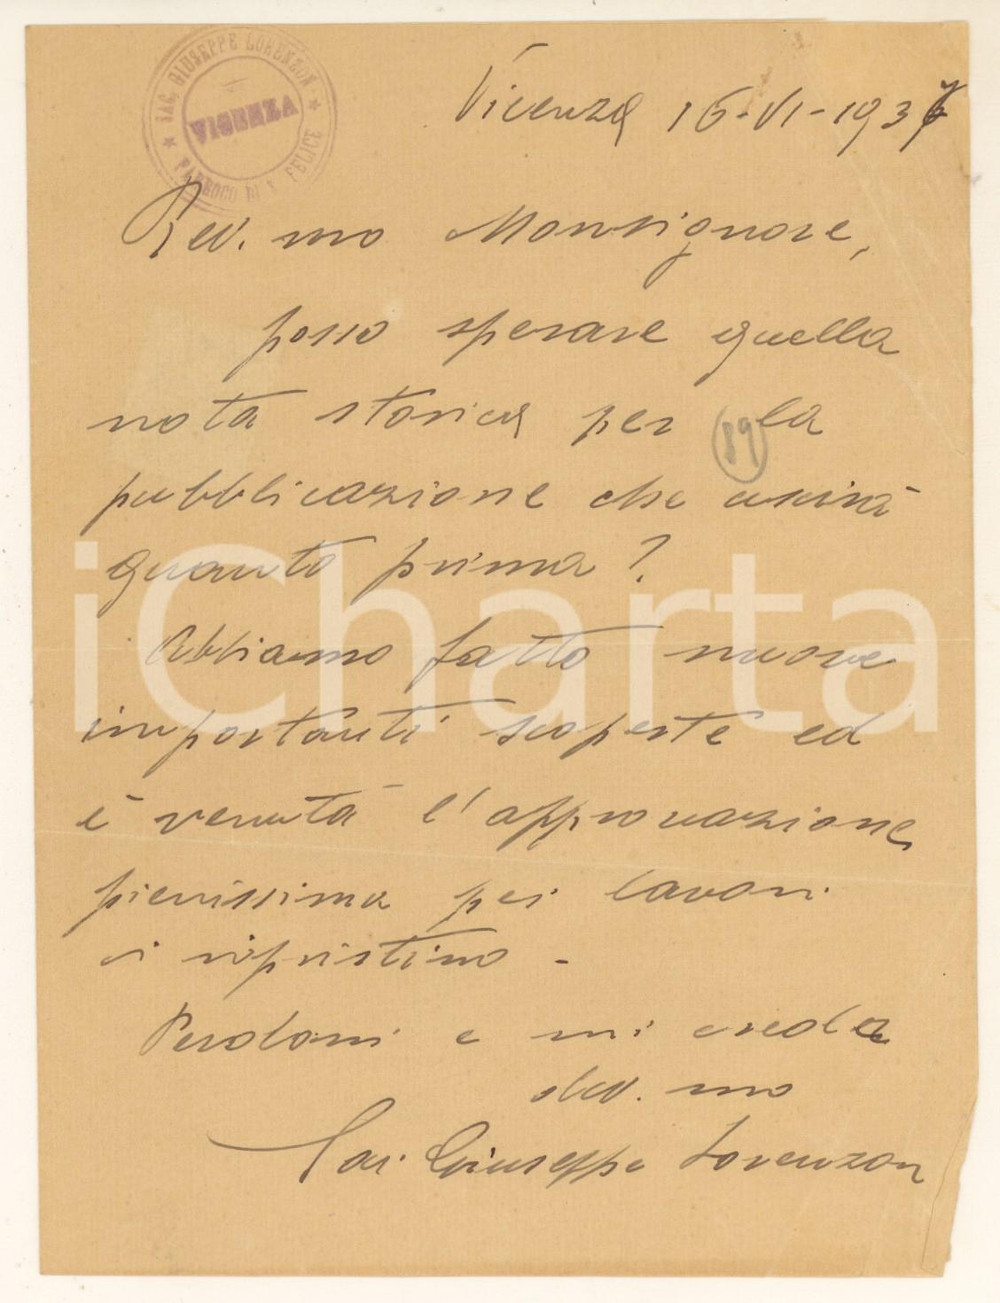 SAC. GIUSEPPE LORENZON
VICENZA
PARROCO DI S. FELICE
Vicenza 16-VI-1937
Rev.mo Monsignore,
posso sperare quella
nota storica per la
89
pubblicazione che uscirà
quanto prima?
iCharta
Abbiamo fatto nuove
importanti scoperte ed
è venuta l'approvazione
pienissima pei lavori
di ripristino -
Perdoni e mi creda
dev.mo
Sac. Giuseppe Lorenzon